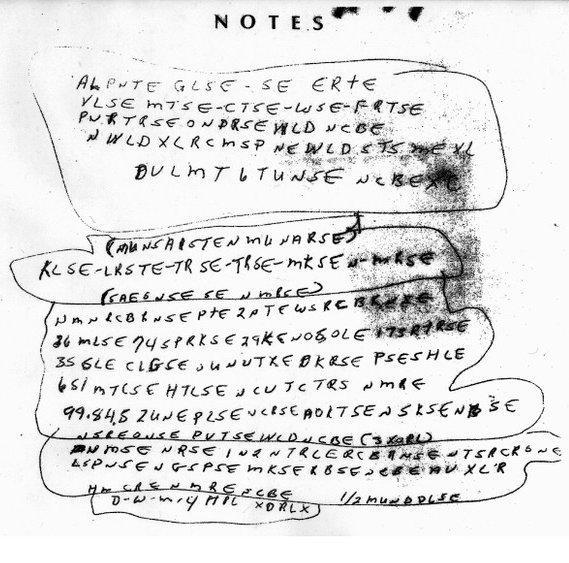 NOTES
ALPNTE GLSE - SE ERTE
VLSE MTSE-CTSE-WSE-FRTSE
PVRTRSE ONDRSE WLD NCBE
NWLDXLRCMSP NEWLD STS ME XL
DULMT 6 TUNSE NCBE XC
(MUNSAISTEN MUNARSE)
KLSE-LRSTE-TRSE-TRSE-MKSEN-MRSE
(SAEGNSE SE NMRSE)
NMNRCBRNSE PTE 2NTEWSRCBRNSE
36 MLSE 74SPRKSE 29KENOSOLE 173RTRSE
35 GLE CLGSE OUNUTXE DKRSE PSESHLE
651 MTCSE HTLSE NCUTCTRS NMRE
99.84.5 2UNE PLSE NCRSE AOLTSE NSKSE NBSE
NSREONSE PUTSE WLD NCBE (3XORL)
NMSE NRSE IN2NTRLERCBRNSE NTSRCRONE
LSPNSE NGSPSE MKSERBSE NCBE AUXLR
HM CRE NMRE NCBE 1/2 MUNDDLSE
D-W-M-4 MPL XDRLX